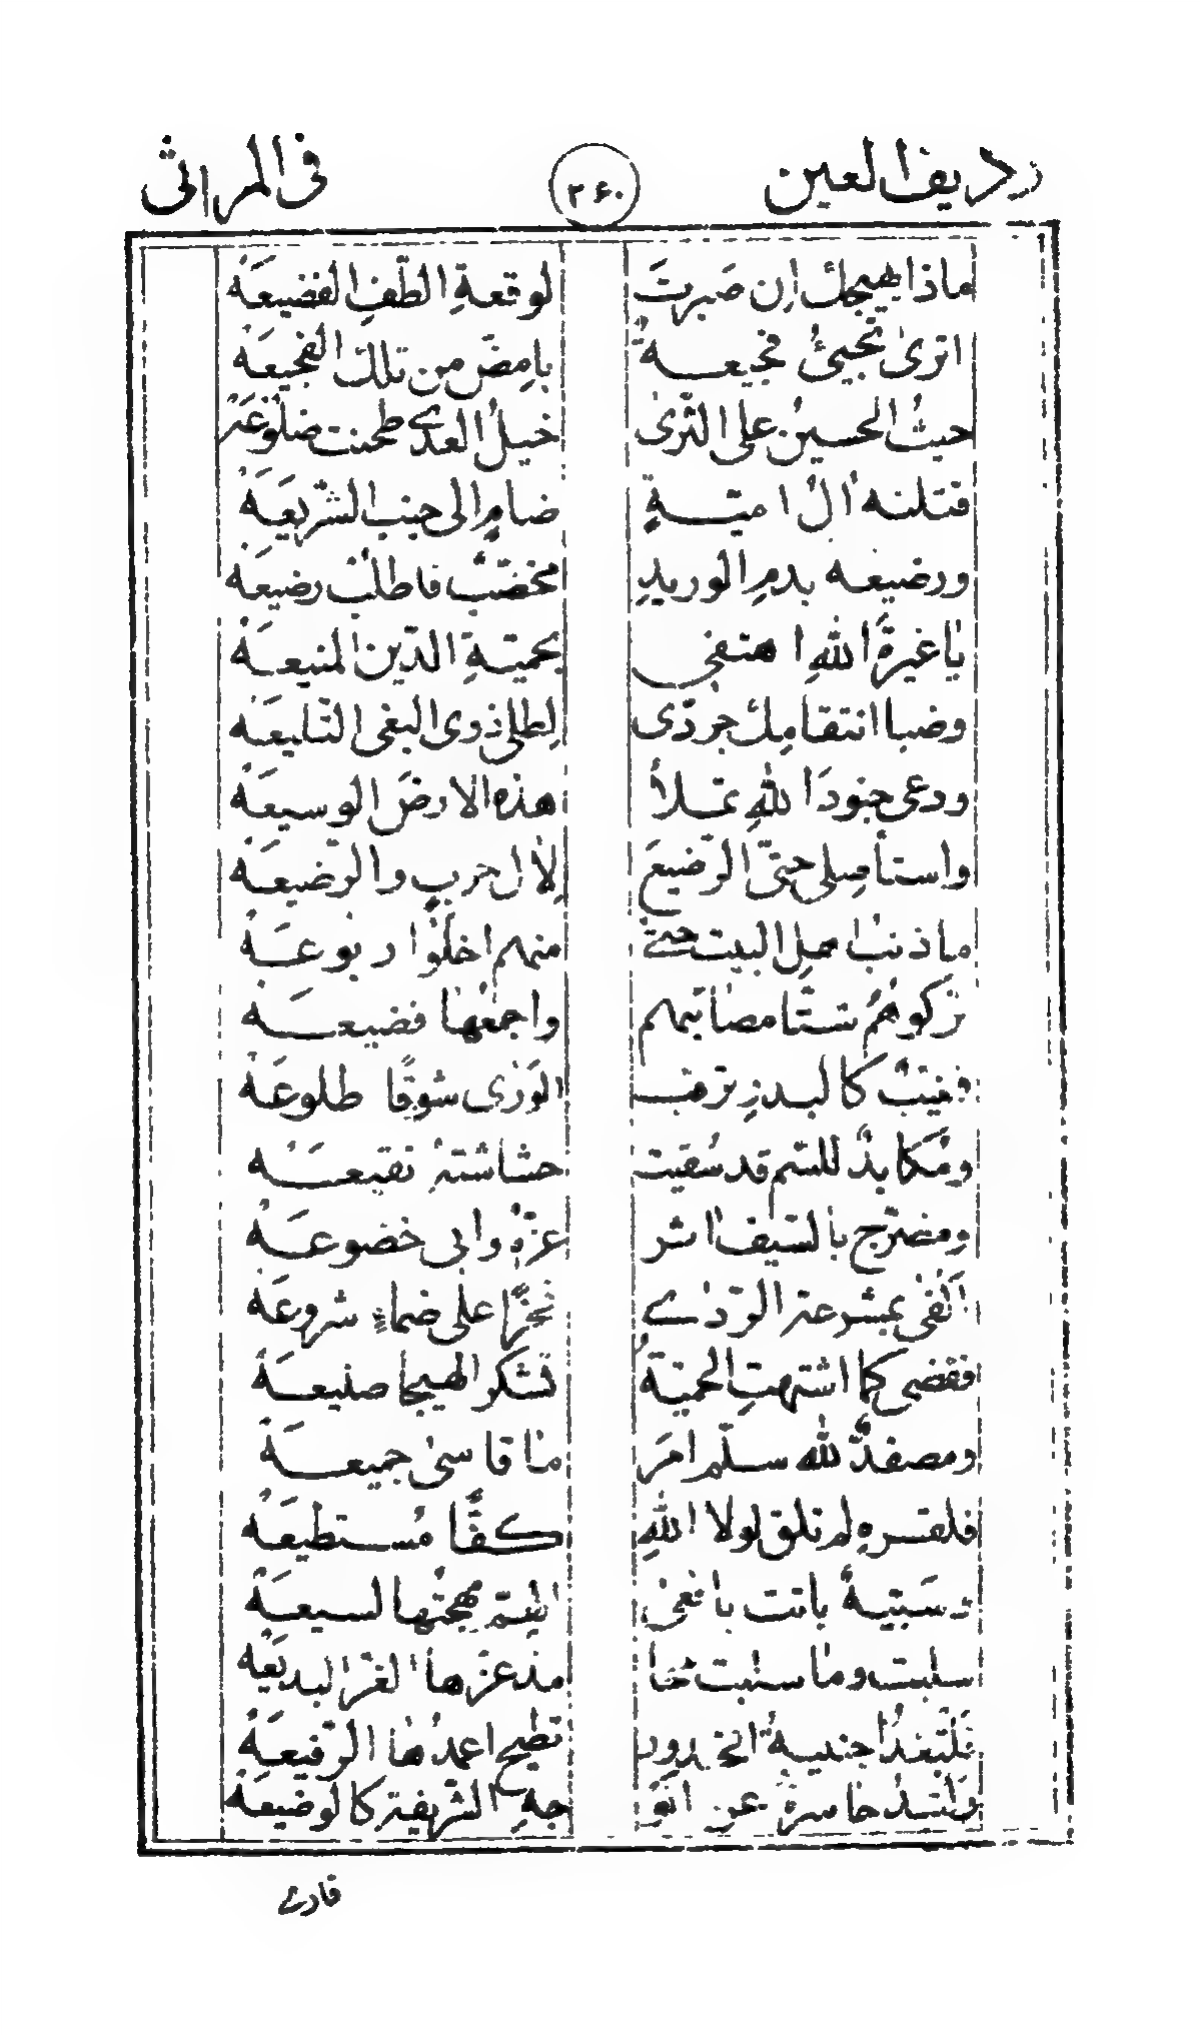 رديف العين ٢٦٠ فى المراثى
ماذا يهيجك ان صَبرتَ لوقعةِ الطّفِ الفضيعَهْ
اترىٰ تجيئُ فجيعــةٌ بامضّ من تلك الفجيعَهْ
حيثُ الحسينُ على الثّرىٰ خيلُ العدے طحنت ضلوعَهْ
قتلته اٰلُ اميّــةٍ ضامٍ الى جنب الشّريعَهْ
ورضيعه بدمِ الوريدِ مخضّبٌ فاطلبْ رضيعَهْ
يا غيرةَ اللهِ اهتفى بحميّةِ الدّين المنيعَهْ
وضبا انتقامِك جرّدى لِطلى ذوى البغى التّليعَهْ
ودعى جنودَ اللهِ تملأُ هذه الارضَ الوسيعَهْ
واستأصلى حتّى الرّضيعَ لِاٰل حربٍ والرّضيعَهْ
ما ذنبُ اهل البيت حتّے منهم اخلَوْا ربوعَهْ
تركوهُمُ شتّا مصائبهم واجمعُها فضيعَهْ
فمغيّبٌ كالبدرِ ترتقب الورىٰ شوقًا طلوعَهْ
ومُكابدٌ للسّم قد سُقيت حشاشتهُ نقيعَهْ
ومضرّج بالسّيف اٰثر عزّهُ وابى خضوعَهْ
اَلفى بمشرعة الرّدٰے فخرًا على ضماءٍ شروعَهْ
فقضى كما اشتهتِ الحميّةُ تشكر الهيجا صنيعَهْ
ومصفدٌ لله سلّم امرَ ما قاسىٰ جميعَهْ
فلقسرهِ لم تلق لولا اللهِ كفًّا مُستطيعَهْ
وسَبيّةٌ باتت بافعىٰ الهمّ مهجتُها لسيعَهْ
سلبت وما سلبت محامد عزّها الغرّ البديعَهْ
فَلتغدُ اخبيةُ الخدور تطيح اعمدُها الرّفيعَهْ
ولتبدُ حاسرةً عن الوجهِ الشّريفة كالوضيعَهْ
فارے